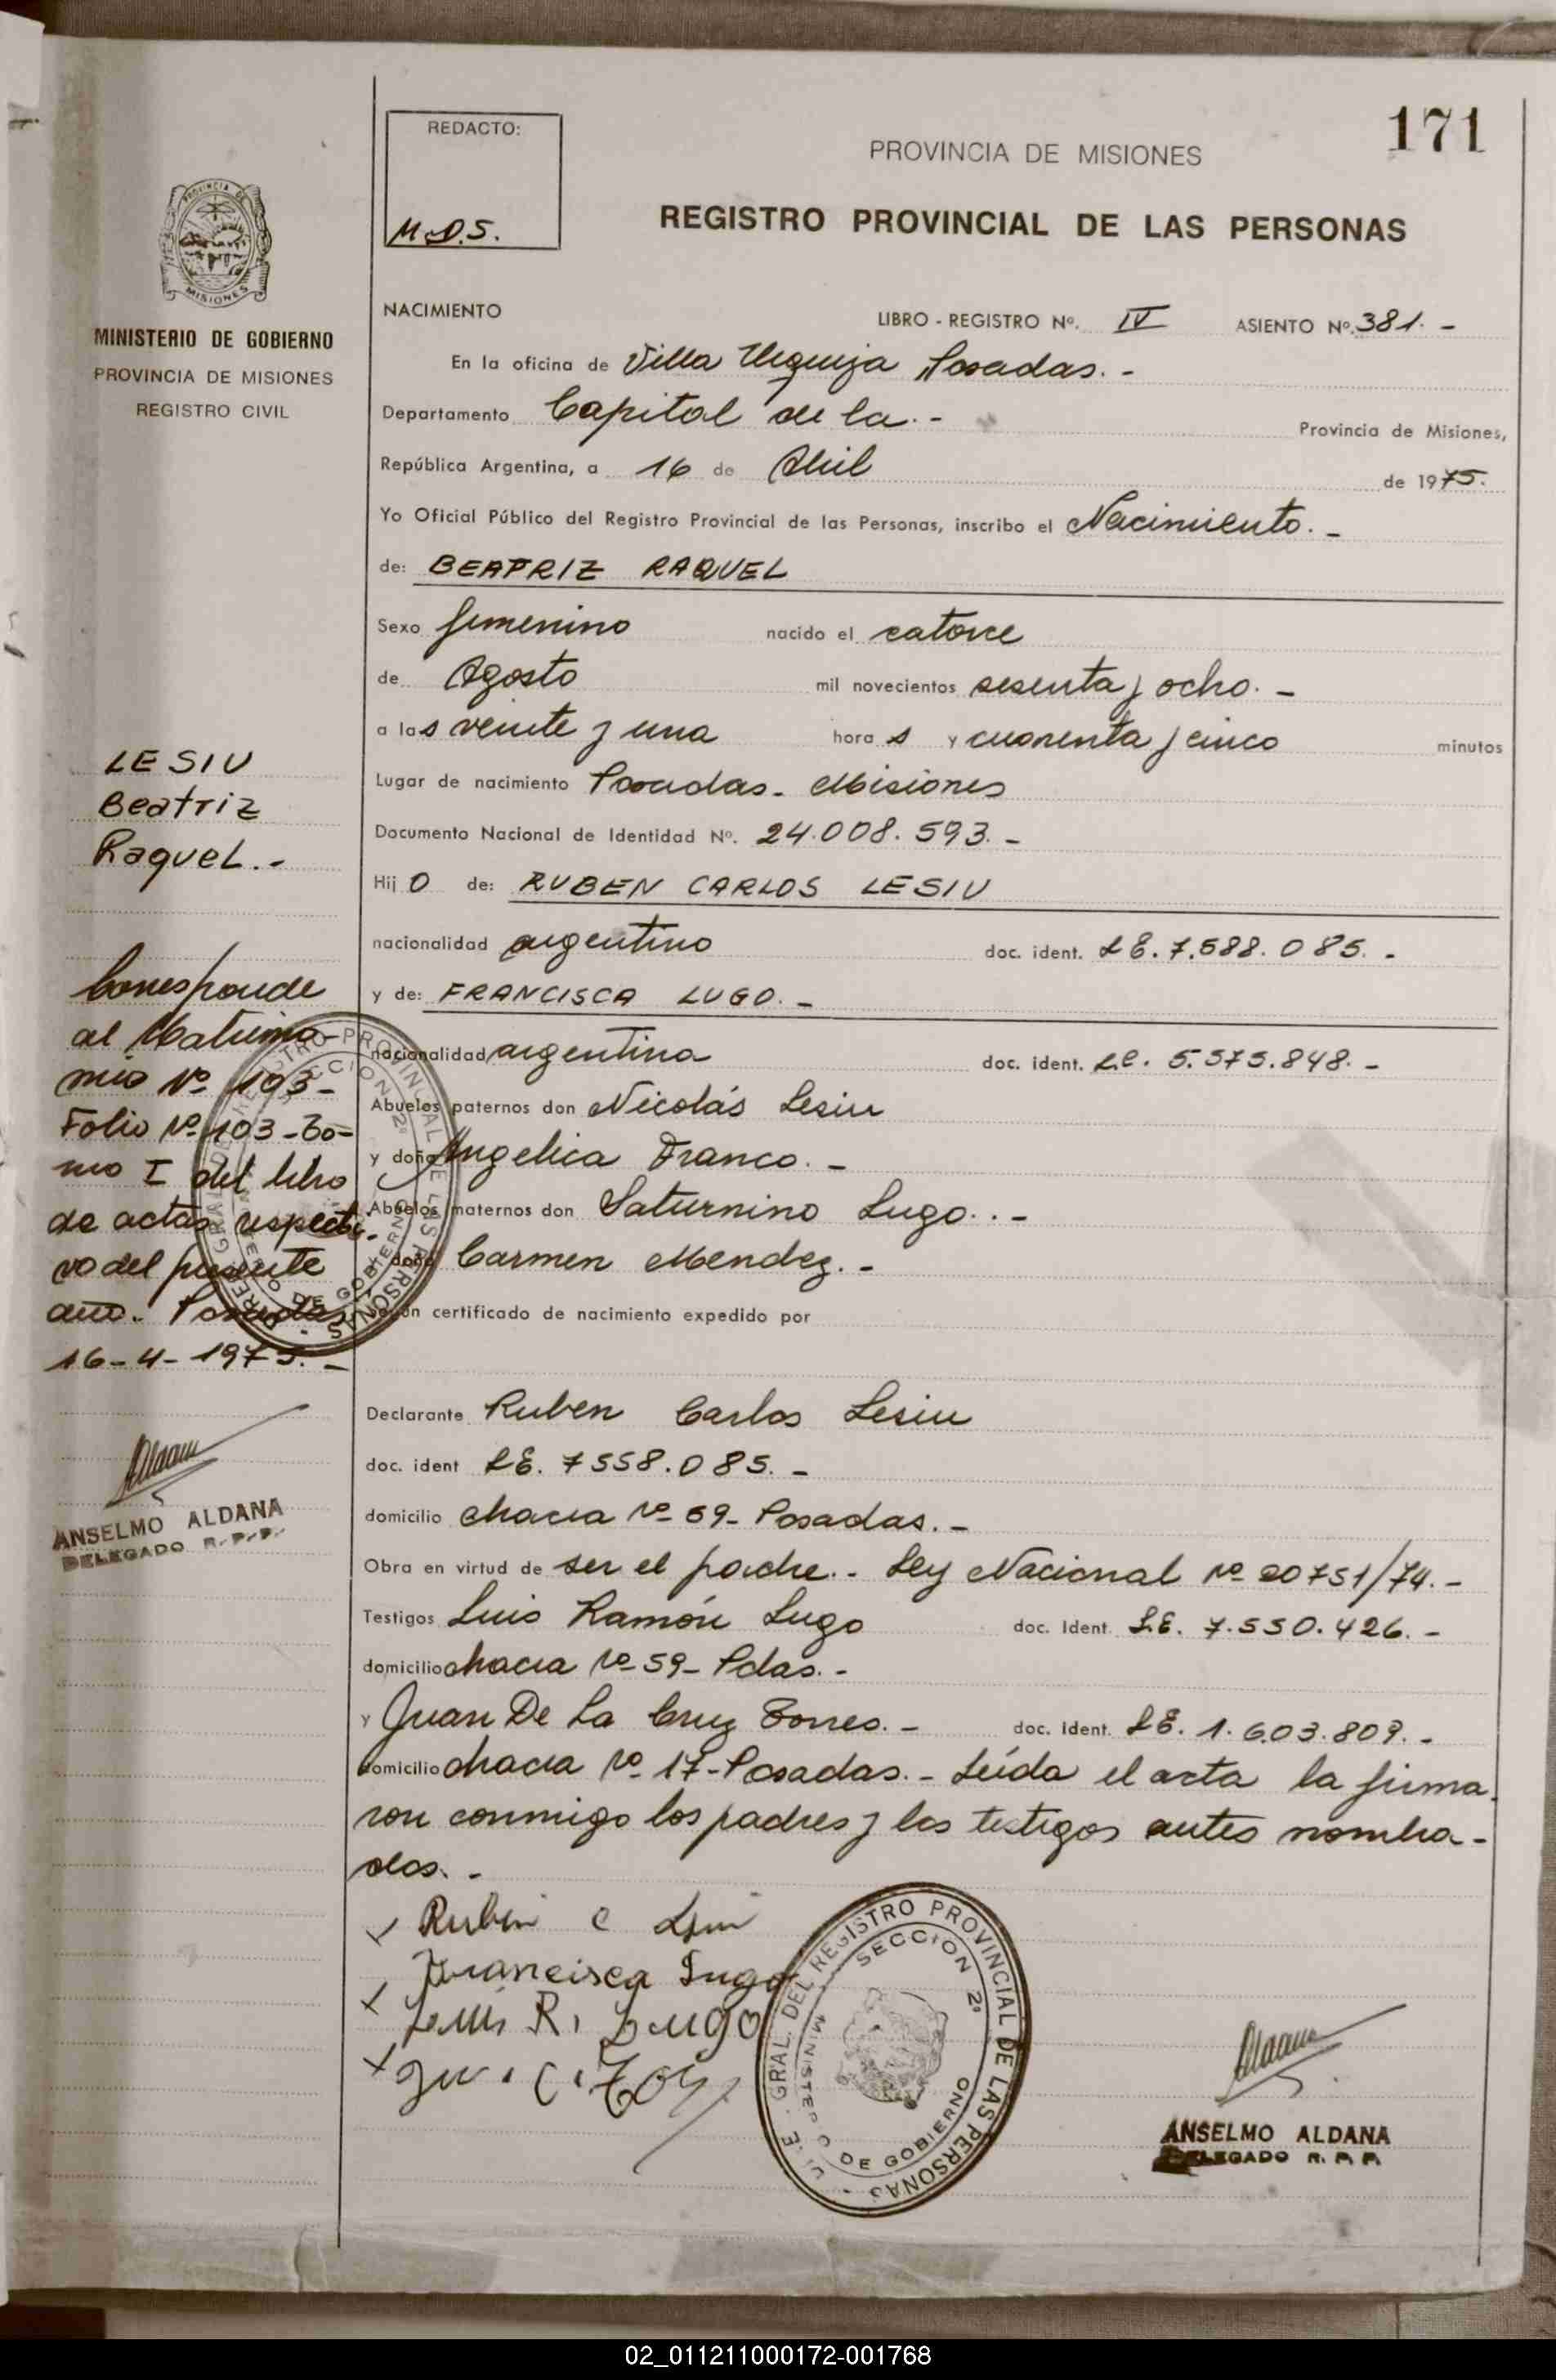 171
REDACTO:
M.D.S.
PROVINCIA DE MISIONES
REGISTRO PROVINCIAL DE LAS PERSONAS
PROVINCIA DE
MISIONES
MINISTERIO DE GOBIERNO
PROVINCIA DE MISIONES
REGISTRO CIVIL
NACIMIENTO
LIBRO - REGISTRO Nº. IV ASIENTO Nº. 381. -
En la oficina de Villa Urquiza Posadas. -
Departamento Capital de la. - Provincia de Misiones,
República Argentina, a 16 de Abril de 1975.
Yo Oficial Público del Registro Provincial de las Personas, inscribo el Nacimiento. -
de: BEATRIZ RAQUEL
Sexo femenino nacido el catorce
de Agosto mil novecientos sesenta y ocho. -
a las veinte y una horas y cuarenta y cinco minutos
Lugar de nacimiento Posadas - Misiones
Documento Nacional de Identidad Nº. 24.008.593. -
Hijo de: RUBEN CARLOS LESIU
nacionalidad argentino doc. ident. LE. 7.588.085. -
y de: FRANCISCA LUGO. -
nacionalidad argentina doc. ident. LC. 5.573.848. -
Abuelos paternos don Nicolás Lesiu
y doña Angelica Franco. -
Abuelos maternos don Saturnino Lugo. . -
doña Carmen Mendez. -
según certificado de nacimiento expedido por
Declarante Ruben Carlos Lesiu
doc. ident LE. 7558.085. -
domicilio chacra Nº 59 - Posadas. -
Obra en virtud de ser el padre. - Ley Nacional Nº 20751/74. -
Testigos Luis Ramón Lugo doc. Ident. LE. 7.550.426. -
domicilio chacra Nº 59 - Pdas. -
y Juan De La Cruz Torres. - doc. Ident. LE. 1.603.809. -
domicilio chacra Nº 17 - Posadas. - Leída el acta la firma
ron conmigo los padres y los testigos antes nombra-
dos. -
LESIU
Beatriz
Raquel. -
Corresponde
al Matrimo-
nio Nº 103 -
Folio Nº 103 - To-
mo I del libro
de actas respecti-
vo del presente
año. Posadas
16-4-1975. -
ANSELMO ALDANA
DELEGADO R.P.P.
Ruben C Lesiu
Francisca Lugo
Luis R. Lugo
GRAL. DEL REGISTRO PROVINCIAL DE LAS PERSONAS
SECCION 2ª
MINISTERIO DE GOBIERNO
ANSELMO ALDANA
DELEGADO R. P. P.
02_011211000172-001768